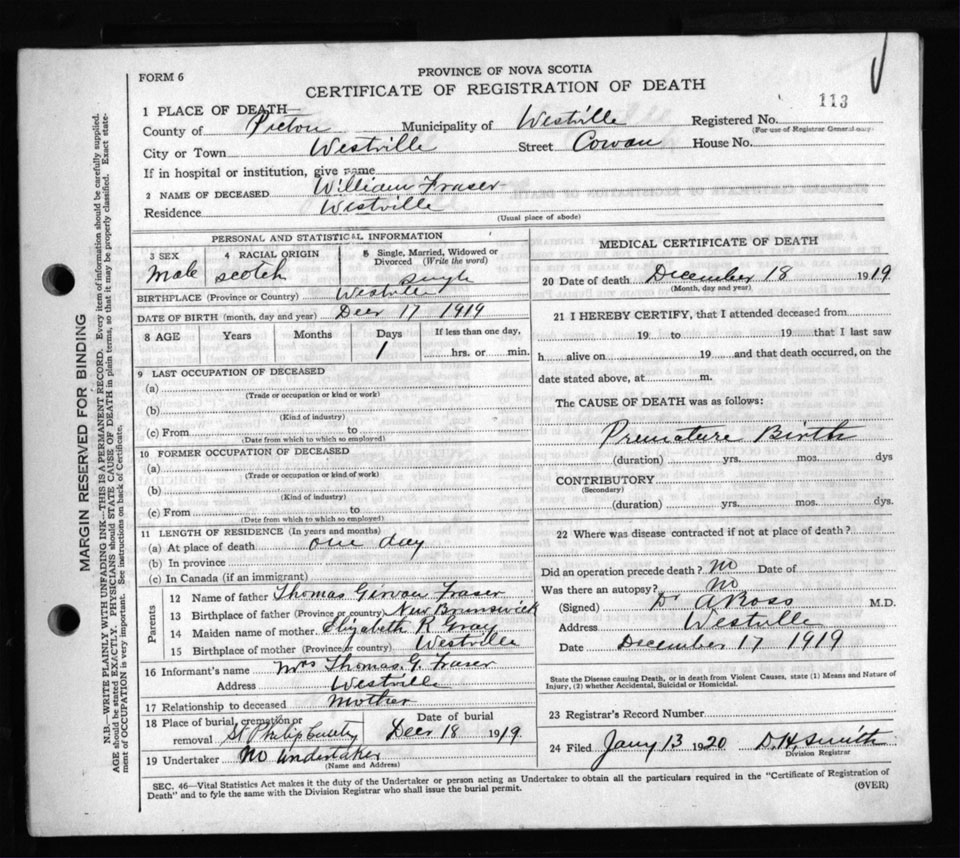 PROVINCE OF NOVA SCOTIA
FORM 6
CERTIFICATE OF REGISTRATION OF DEATH
113
1 PLACE OF DEATH—
County of Pictou Municipality of Westville Registered No.
(For use of Registrar General only)
City or Town Westville Street Cowan House No.
If in hospital or institution, give name
2 NAME OF DECEASED William Fraser
Residence Westville
(Usual place of abode)
PERSONAL AND STATISTICAL INFORMATION
3 SEX Male
4 RACIAL ORIGIN Scotch
5 Single, Married, Widowed or Divorced (Write the word) Single
BIRTHPLACE (Province or Country) Westville
DATE OF BIRTH (month, day and year) Decr 17 1919
8 AGE Years Months Days If less than one day,
1 hrs. or min.
9 LAST OCCUPATION OF DECEASED
(a)
(Trade or occupation or kind of work)
(b)
(Kind of industry)
(c) From to
(Date from which to which so employed)
10 FORMER OCCUPATION OF DECEASED
(a)
(Trade or occupation or kind of work)
(b)
(Kind of industry)
(c) From to
(Date from which to which so employed)
11 LENGTH OF RESIDENCE (In years and months)
(a) At place of death one day
(b) In province
(c) In Canada (if an immigrant)
Parents
12 Name of father Thomas Girvan Fraser
13 Birthplace of father (Province or country) New Brunswick
14 Maiden name of mother Elizabeth R Gray
15 Birthplace of mother (Province or country) Westville
16 Informant's name Mrs Thomas G. Fraser
Address Westville
17 Relationship to deceased Mother
18 Place of burial, cremation or removal St Philip
Date of burial Decr 18 1919.
19 Undertaker No Undertaker
(Name and Address)
MEDICAL CERTIFICATE OF DEATH
20 Date of death December 18 1919
(Month, day and year)
21 I HEREBY CERTIFY, that I attended deceased from
19 to 19 that I last saw
h alive on 19 and that death occurred, on the
date stated above, at m.
The CAUSE OF DEATH was as follows:
Premature Birth
(duration) yrs. mos. dys
CONTRIBUTORY
(Secondary)
(duration) yrs. mos. dys.
22 Where was disease contracted if not at place of death?
Did an operation precede death? No Date of
Was there an autopsy? No
(Signed) Dr A Ross M.D.
Address Westville
Date December 17 1919
State the Disease causing Death, or in death from Violent Causes, state (1) Means and Nature of
Injury, (2) whether Accidental, Suicidal or Homicidal.
23 Registrar's Record Number
24 Filed Jany 13 1920 D. H. Smith
Division Registrar
SEC. 46—Vital Statistics Act makes it the duty of the Undertaker or person acting as Undertaker to obtain all the particulars required in the "Certificate of Registration of
Death" and to fyle the same with the Division Registrar who shall issue the burial permit.
(OVER)
MARGIN RESERVED FOR BINDING
N.B.—WRITE PLAINLY WITH UNFADING INK—THIS IS A PERMANENT RECORD. Every item of information should be carefully supplied.
AGE should be stated EXACTLY. PHYSICIANS should STATE CAUSE OF DEATH in plain terms, so that it may be properly classified. Exact state-
ment of OCCUPATION is very important. See instructions on back of Certificate.